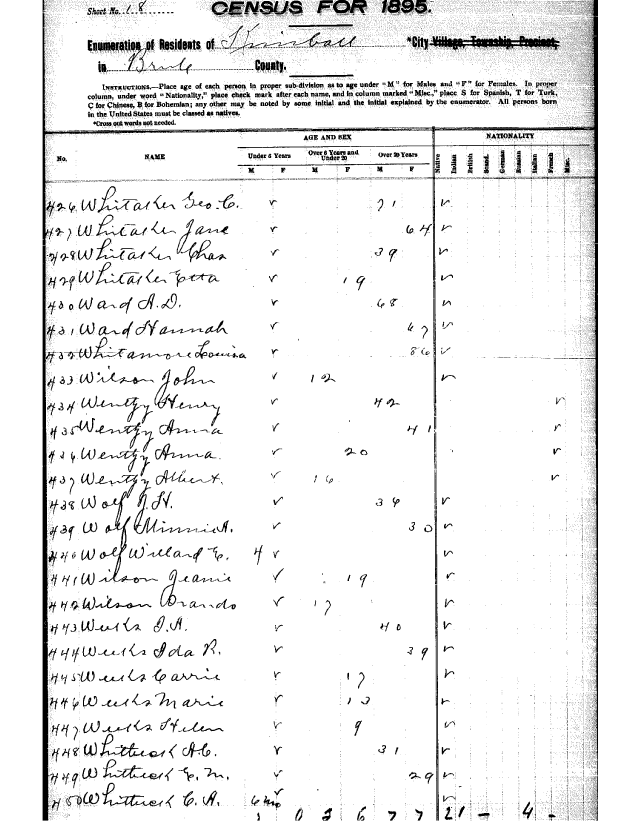 Sheet No. 18
CENSUS FOR 1895.
Enumeration of Residents of Kimball *City Village, Township, Precinct,
in Brule County.
INSTRUCTIONS.—Place age of each person in proper sub-division as to age under "M" for Males and "F" for Females. In proper
column, under word "Nationality," place check mark after each name, and in column marked "Misc.," place S for Spanish, T for Turk,
C for Chinese, B for Bohemian; any other may be noted by some initial and the initial explained by the enumerator. All persons born
in the United States must be classed as natives.
*Cross out words not needed.
AGE AND SEX NATIONALITY
No. NAME Under 6 Years Over 6 Years and Under 20 Over 20 Years Native British Scand. German Russian Italian French Misc.
M F M F M F
426 Whitaker Geo. C. ✓ 71 ✓
427 Whitaker Jane ✓ 64 ✓
428 Whitaker Chas ✓ 39 ✓
429 Whitaker Etta ✓ 19 ✓
430 Ward A.D. ✓ 68 ✓
431 Ward Hannah ✓ 67 ✓
432 Whitamore Louisa ✓ 86 ✓
433 Wilson John ✓ 12 ✓
434 Wentzy Henry ✓ 42 ✓
435 Wentzy Anna ✓ 41 ✓
436 Wentzy Anna ✓ 20 ✓
437 Wentzy Albert. ✓ 16 ✓
438 Wolf J.H. ✓ 36 ✓
439 Wolf Minnie A. ✓ 30 ✓
440 Wolf Willard E. 4 ✓ ✓
441 Wilson Jeanie ✓ 19 ✓
442 Wilson Brando ✓ 17 ✓
443 Weeks I.A. ✓ 40 ✓
444 Weeks Ida R. ✓ 39 ✓
445 Weeks Carrie ✓ 17 ✓
446 Weeks Marie ✓ 13 ✓
447 Weeks Helen ✓ 9 ✓
448 Whittuck A.C. ✓ 31 ✓
449 Whittuck E. M. ✓ 29 ✓
450 Whittuck C. A. 6 mo ✓ ✓
0 3 6 7 7 21 - 4 -